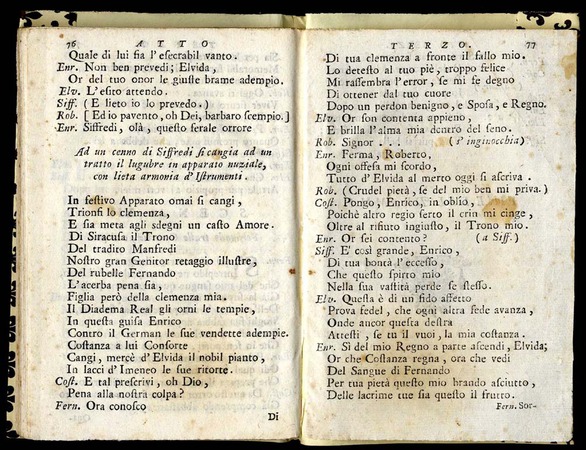 76 ATTO
Quale di lui sia l'esecrabil vanto.
Enr. Non ben prevedi; Elvida,
Or del tuo onor le giuste brame adempio.
Elv. L'esito attendo.
Siff. (E lieto io lo prevedo.)
Rob. [Ed io pavento, oh Dei, barbaro scempio.]
Enr. Siffredi, olà, questo ferale orrore
Ad un cenno di Siffredi si cangia ad un
tratto il lugubre in apparato nuziale,
con lieta armonia d'Istrumenti.
In festivo Apparato omai si cangi,
Trionfi lo clemenza,
E sia meta agli sdegni un casto Amore.
Di Siracusa il Trono
Del tradito Manfredi
Nostro gran Genitor retaggio illustre,
Del rubelle Fernando
L'acerba pena sia,
Figlia però della clemenza mia.
Il Diadema Real gli orni le tempie,
In questa guisa Enrico
Contro il German le sue vendette adempie.
Costanza a lui Consorte
Cangi, mercè d'Elvida il nobil pianto,
In lacci d'Imeneo le sue ritorte.
Cost. E tal prescrivi, oh Dio,
Pena alla nostra colpa?
Fern. Ora conosco
Di
TERZO. 77
Di tua clemenza a fronte il fallo mio.
Lo detesto al tuo piè, troppo felice
Mi rassembra l'error, se mi fe degno
Di ottener dal tuo cuore
Dopo un perdon benigno, e Sposa, e Regno.
Elv. Or son contenta appieno,
E brilla l'alma mia dentro del seno.
Rob. Signor . . . (s'inginocchia)
Enr. Ferma, Roberto,
Ogni offesa mi scordo,
Tutto d'Elvida al merto oggi si ascriva.
Rob. (Crudel pietà, se del mio ben mi priva.)
Cost. Pongo, Enrico, in oblio,
Poichè altro regio serto il crin mi cinge,
Oltre al rifiuto ingiusto, il Trono mio.
Enr. Or sei contento? (a Siff.)
Siff. E' così grande, Enrico,
Di tua bontà l'eccesso,
Che questo spirto mio
Nella sua vastità perde se stesso.
Elv. Questa è di un fido affetto
Prova fedel, che ogni altra fede avanza,
Onde ancor questa destra
Attesti, se tu il vuoi, la mia costanza.
Enr. Sì del mio Regno a parte ascendi, Elvida;
Or che Costanza regna, ora che vedi
Del Sangue di Fernando
Per tua pietà questo mio brando asciutto,
Delle lacrime tue sia questo il frutto.
Fern. Sor-